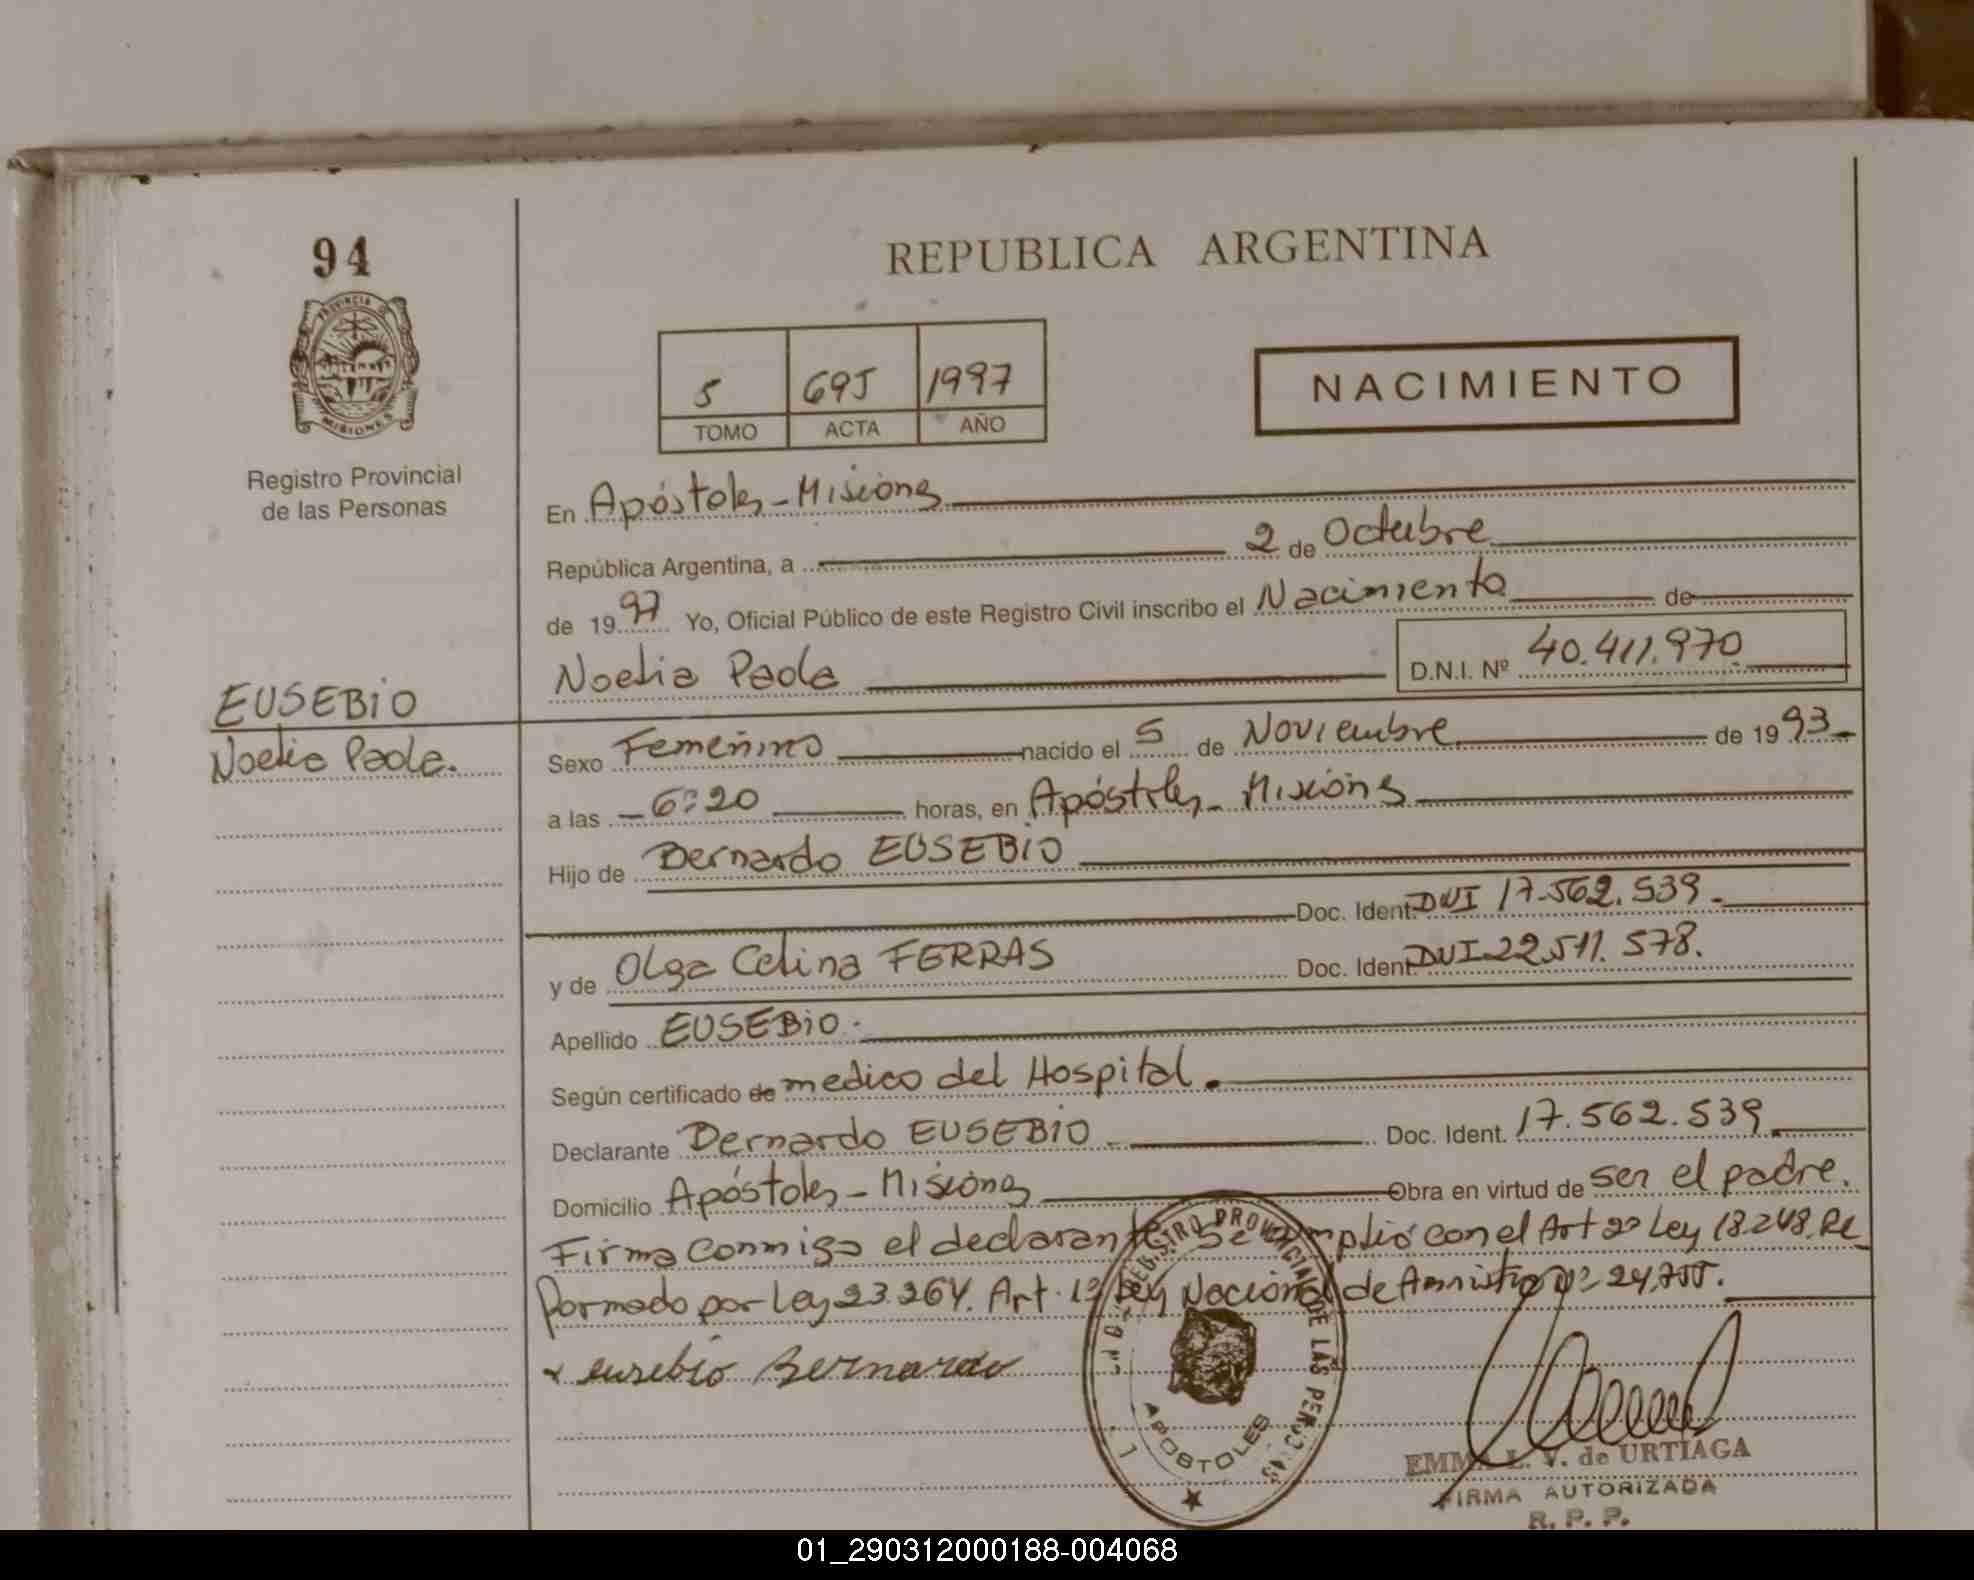 94
PROVINCIA DE
MISIONES
Registro Provincial
de las Personas
EUSEBIO
Noelia Paola.
REPUBLICA ARGENTINA
5 695 1997
TOMO ACTA AÑO
NACIMIENTO
En Apóstoles - Misiones
República Argentina, a 2 de Octubre
de 1997 Yo, Oficial Público de este Registro Civil inscribo el Nacimiento de
Noelia Paola D.N.I. Nº 40.411.970
Sexo Femenino nacido el 5 de Noviembre de 1993
a las 6:20 horas, en Apóstoles - Misiones
Hijo de Bernardo EUSEBIO
Doc. Ident. DNI 17.562.539.
y de Olga Celina FERRAS Doc. Ident. DNI 22.511.578.
Apellido EUSEBIO.
Según certificado de medico del Hospital.
Declarante Bernardo EUSEBIO Doc. Ident. 17.562.539
Domicilio Apóstoles - Misiones Obra en virtud de ser el padre.
Firma conmigo el declarante. Se cumplió con el Art 2º Ley 18.248. Re
formado por Ley 23.264. Art. 1º Ley Nacional de Amnistia nº 24.755.
x eusebio Bernardo
REGISTRO PROVINCIAL DE LAS PERSONAS
APOSTOLES
EMMA L. V. de URTIAGA
FIRMA AUTORIZADA
R. P. P.
01_290312000188-004068